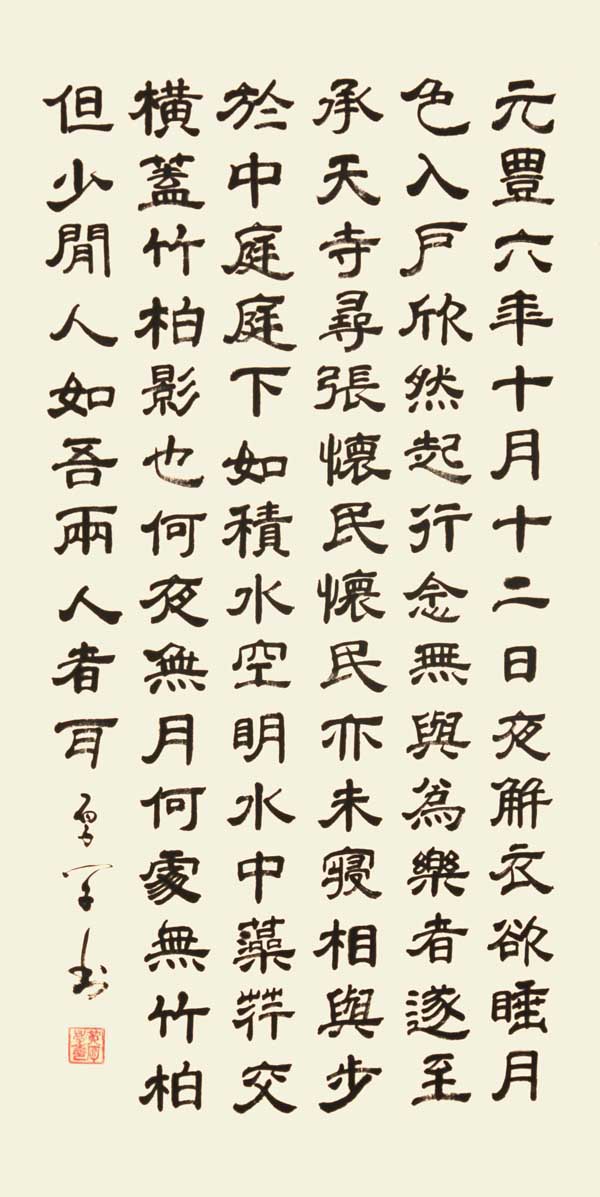 元豐六年十月十二日夜解衣欲睡月
色入戶欣然起行念無與為樂者遂至
承天寺尋張懷民懷民亦未寢相與步
於中庭庭下如積水空明水中藻荇交
橫蓋竹柏影也何夜無月何處無竹柏
但少閒人如吾兩人者耳 书